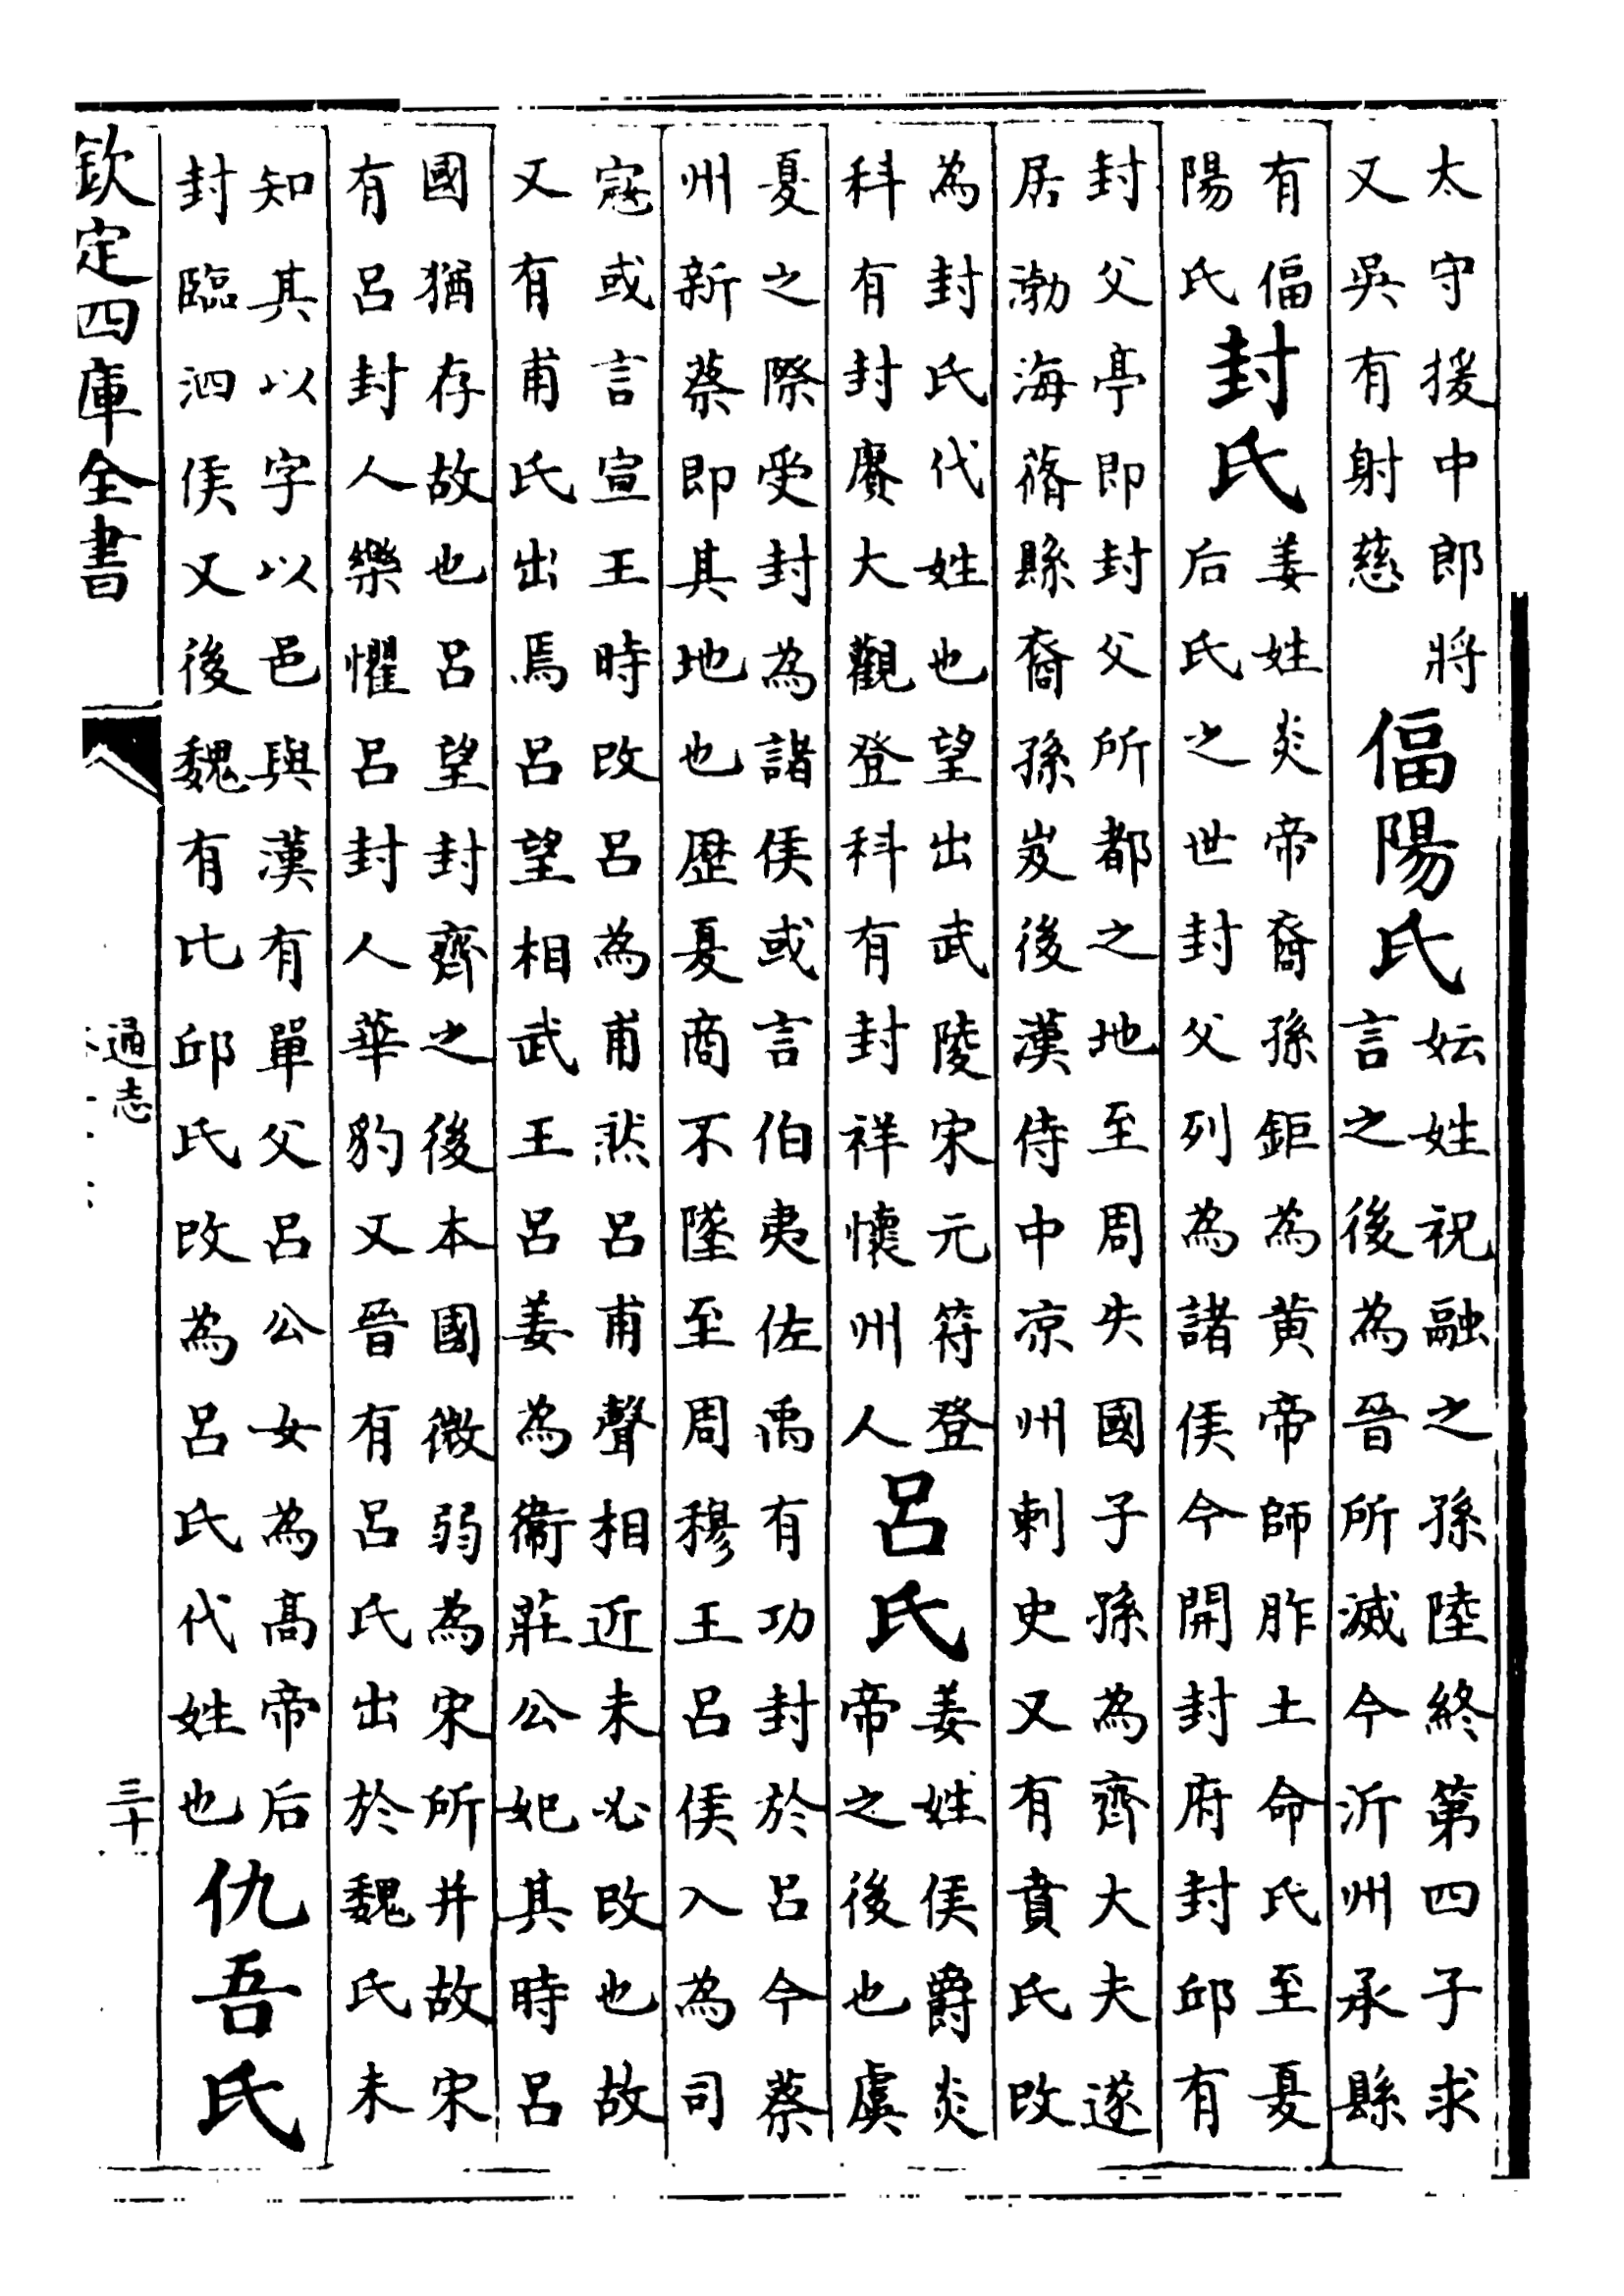 太守援中郎將
又吳有射慈
偪陽氏
妘姓祝融之孫陸終第四子求
言之後為晉所滅今沂州承縣
有偪
陽氏
封氏
姜姓炎帝裔孫鉅為黄帝師胙土命氏至夏
后氏之世封父列為諸侯今開封府封邱有
封父亭即封父所都之地至周失國子孫為齊大夫遂
居渤海蓨縣裔孫岌後漢侍中凉州刺史又有賁氏改
為封氏代姓也望出武陵宋元符登
科有封賡大觀登科有封祥懷州人
呂氏
姜姓侯爵炎
帝之後也虞
夏之際受封為諸侯或言伯夷佐禹有功封於呂今蔡
州新蔡即其地也歴夏商不墜至周穆王呂侯入為司
寇或言宣王時改呂為甫然呂甫聲相近未必改也故
又有甫氏出焉呂望相武王呂姜為衞莊公妃其時呂
國猶存故也呂望封齊之後本國微弱為宋所并故宋
有呂封人樂懼呂封人華豹又晉有呂氏出於魏氏未
知其以字以邑與漢有單父呂公女為髙帝后
封臨泗侯又後魏有比邱氏改為呂氏代姓也
仇吾氏
欽定四庫全書
通志
三十